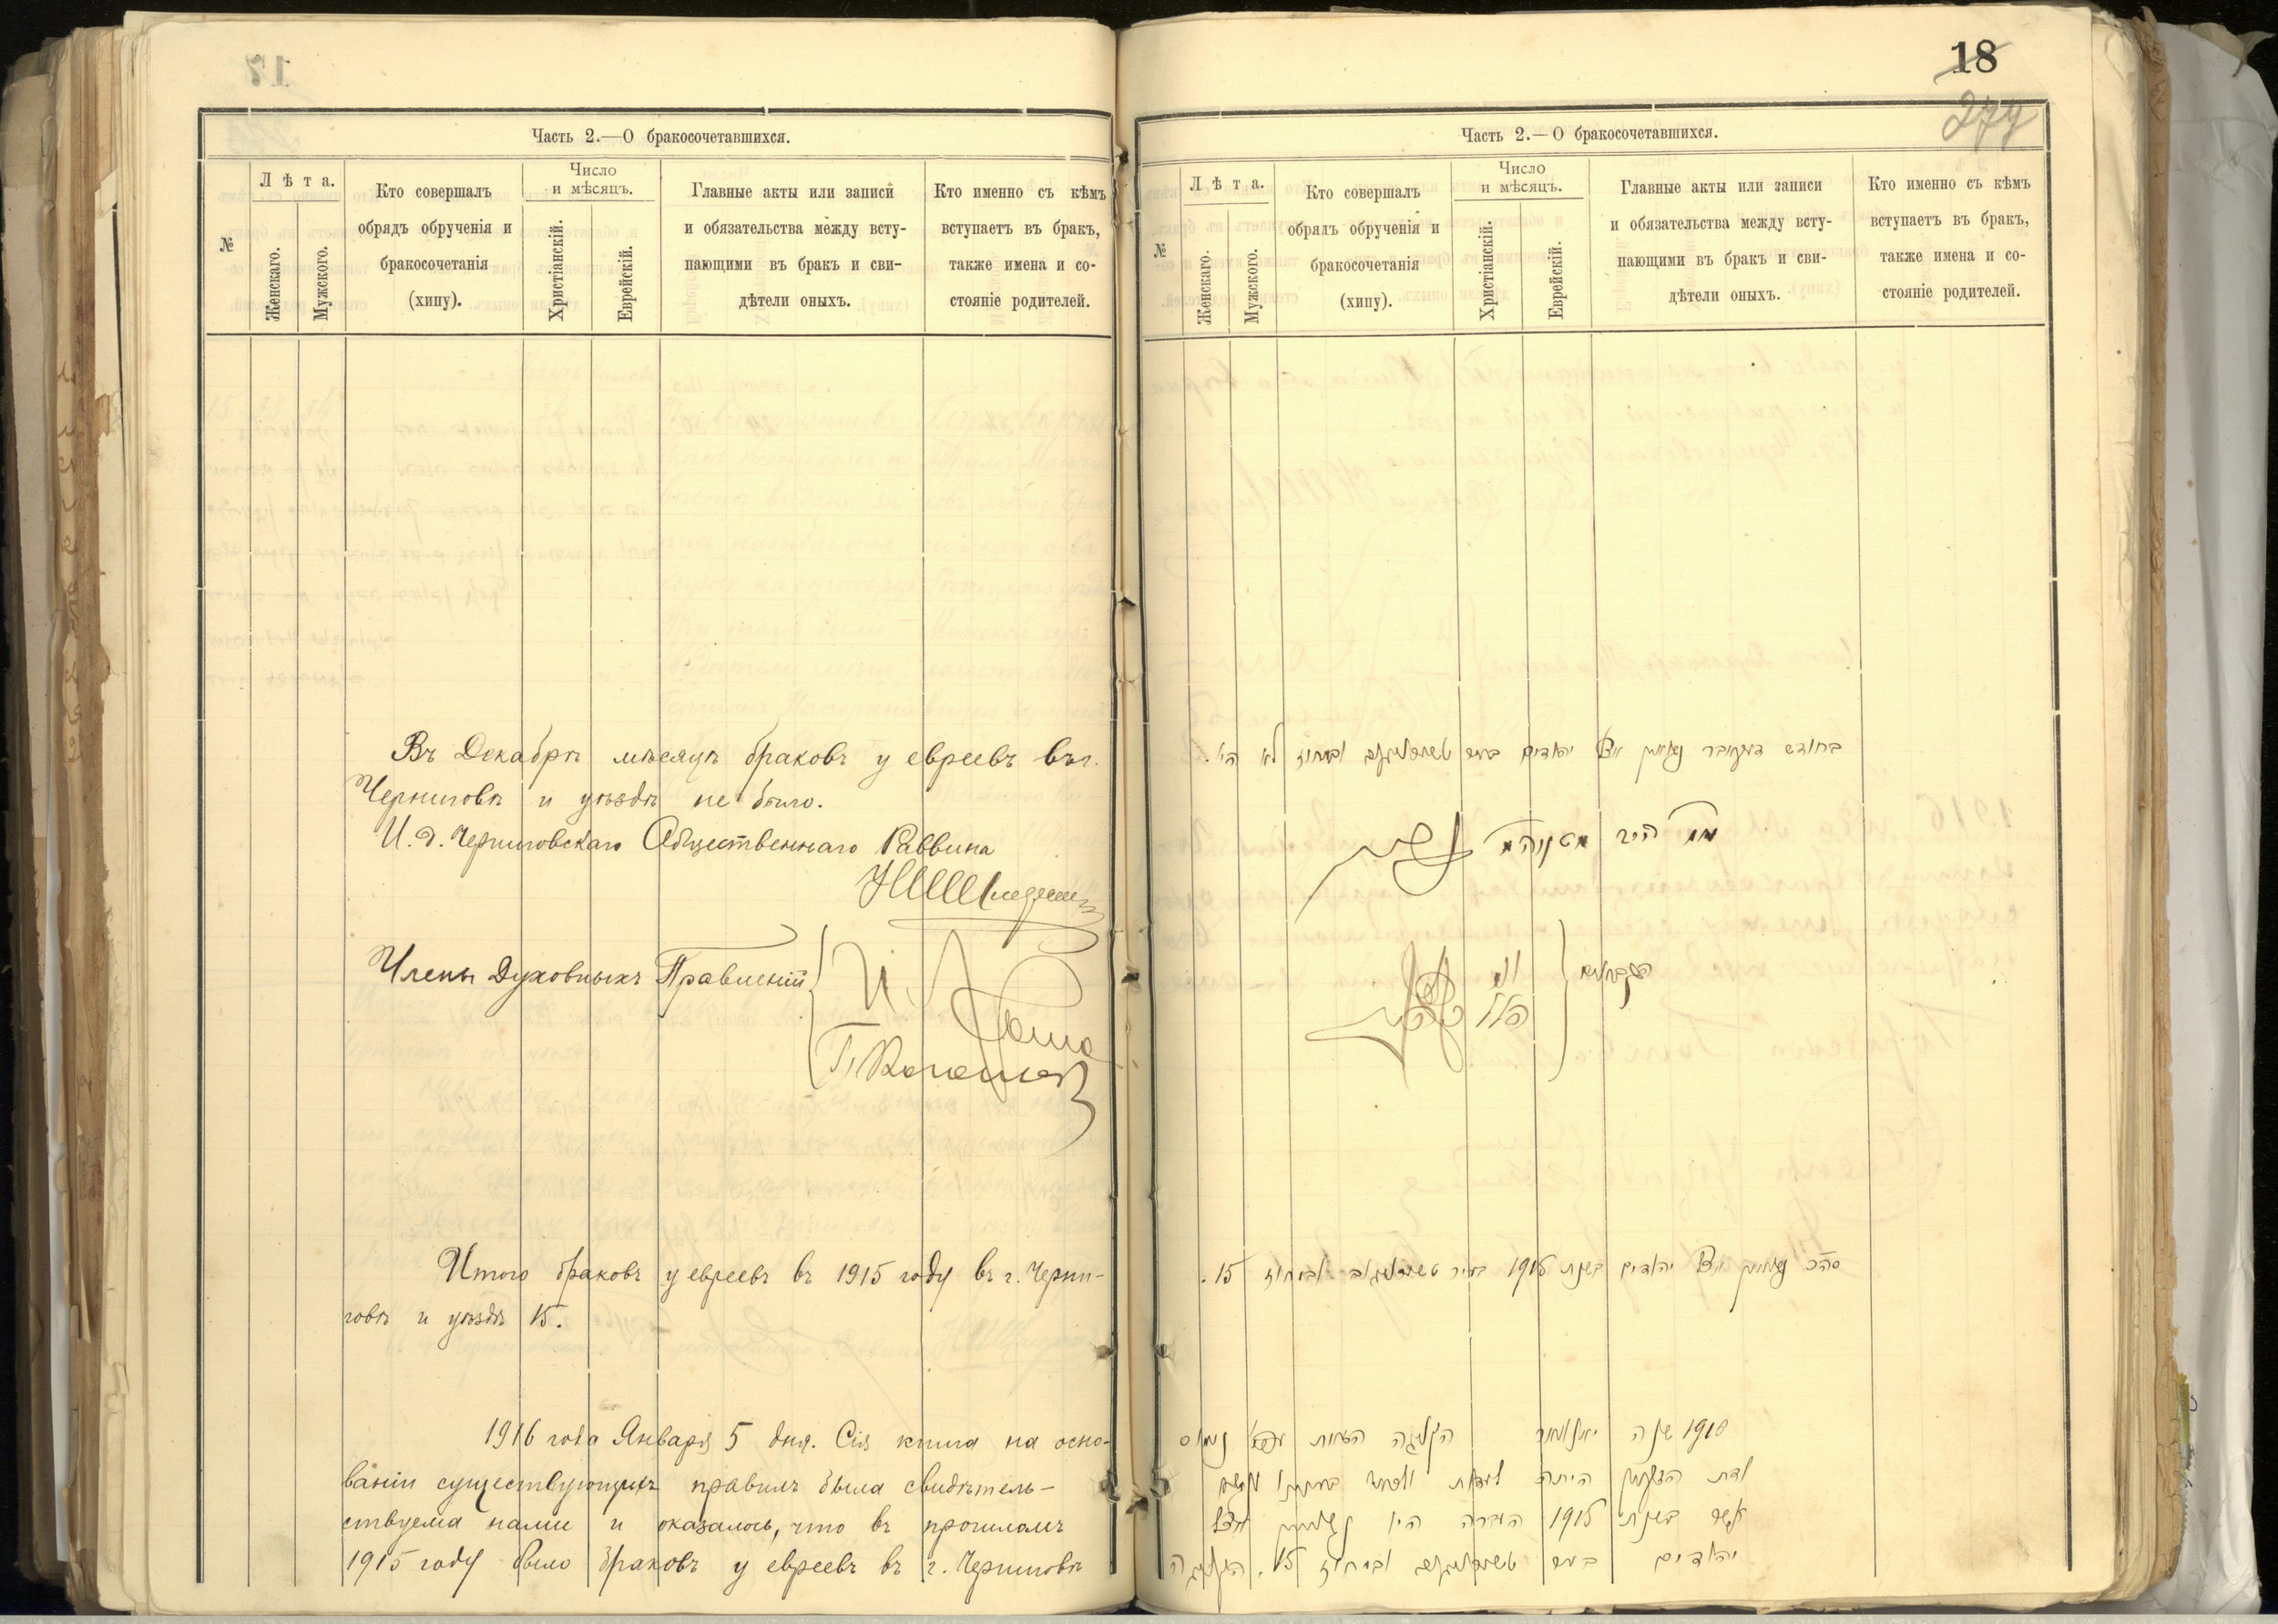 Часть 2.—О бракосочетавшихся.
№
Лѣта.
Женскаго.
Мужского.
Кто совершалъ
обрядъ обрученія и
бракосочетанія
(хипу).
Число
и мѣсяцъ.
Христіанскій.
Еврейскій.
Главные акты или записи
и обязательства между всту-
пающими въ бракъ и сви-
дѣтели оныхъ.
Кто именно съ кѣмъ
вступаетъ въ бракъ,
также имена и со-
стояніе родителей.
Въ Декабрѣ мѣсяцѣ браковъ у евреевъ въ г.
Черниговѣ и уѣздѣ не было.
И. д. Черниговскаго Общественнаго Раввина
Члены Духовныхъ Правленій
Итого браковъ у евреевъ въ 1915 году въ г. Черни-
говѣ и уѣздѣ 15.
1916 года Января 5 дня. Сія книга на осно-
ваніи существующихъ правилъ была свидѣтель-
ствуема нами и оказалось, что въ прошломъ
1915 году было браковъ у евреевъ въ г. Черниговѣ
18
279
Часть 2.—О бракосочетавшихся.
№
Лѣта.
Женскаго.
Мужского.
Кто совершалъ
обрядъ обрученія и
бракосочетанія
(хипу).
Число
и мѣсяцъ.
Христіанскій.
Еврейскій.
Главные акты или записи
и обязательства между всту-
пающими въ бракъ и сви-
дѣтели оныхъ.
Кто именно съ кѣмъ
вступаетъ въ бракъ,
также имена и со-
стояніе родителей.
בחודש דעקאבר נשואין אצל יהודים בעיר טשערניגאוו ובמחוז לא היו.
סה״כ נשואין אצל יהודים בשנת 1915 בעיר טשערניגאוו ובמחוז 15.
שנה
היתה
אשר בשנת 1915 העברה היו נשואין אצל
יהודים בעיר טשערניגאוו ובמחוז 15.